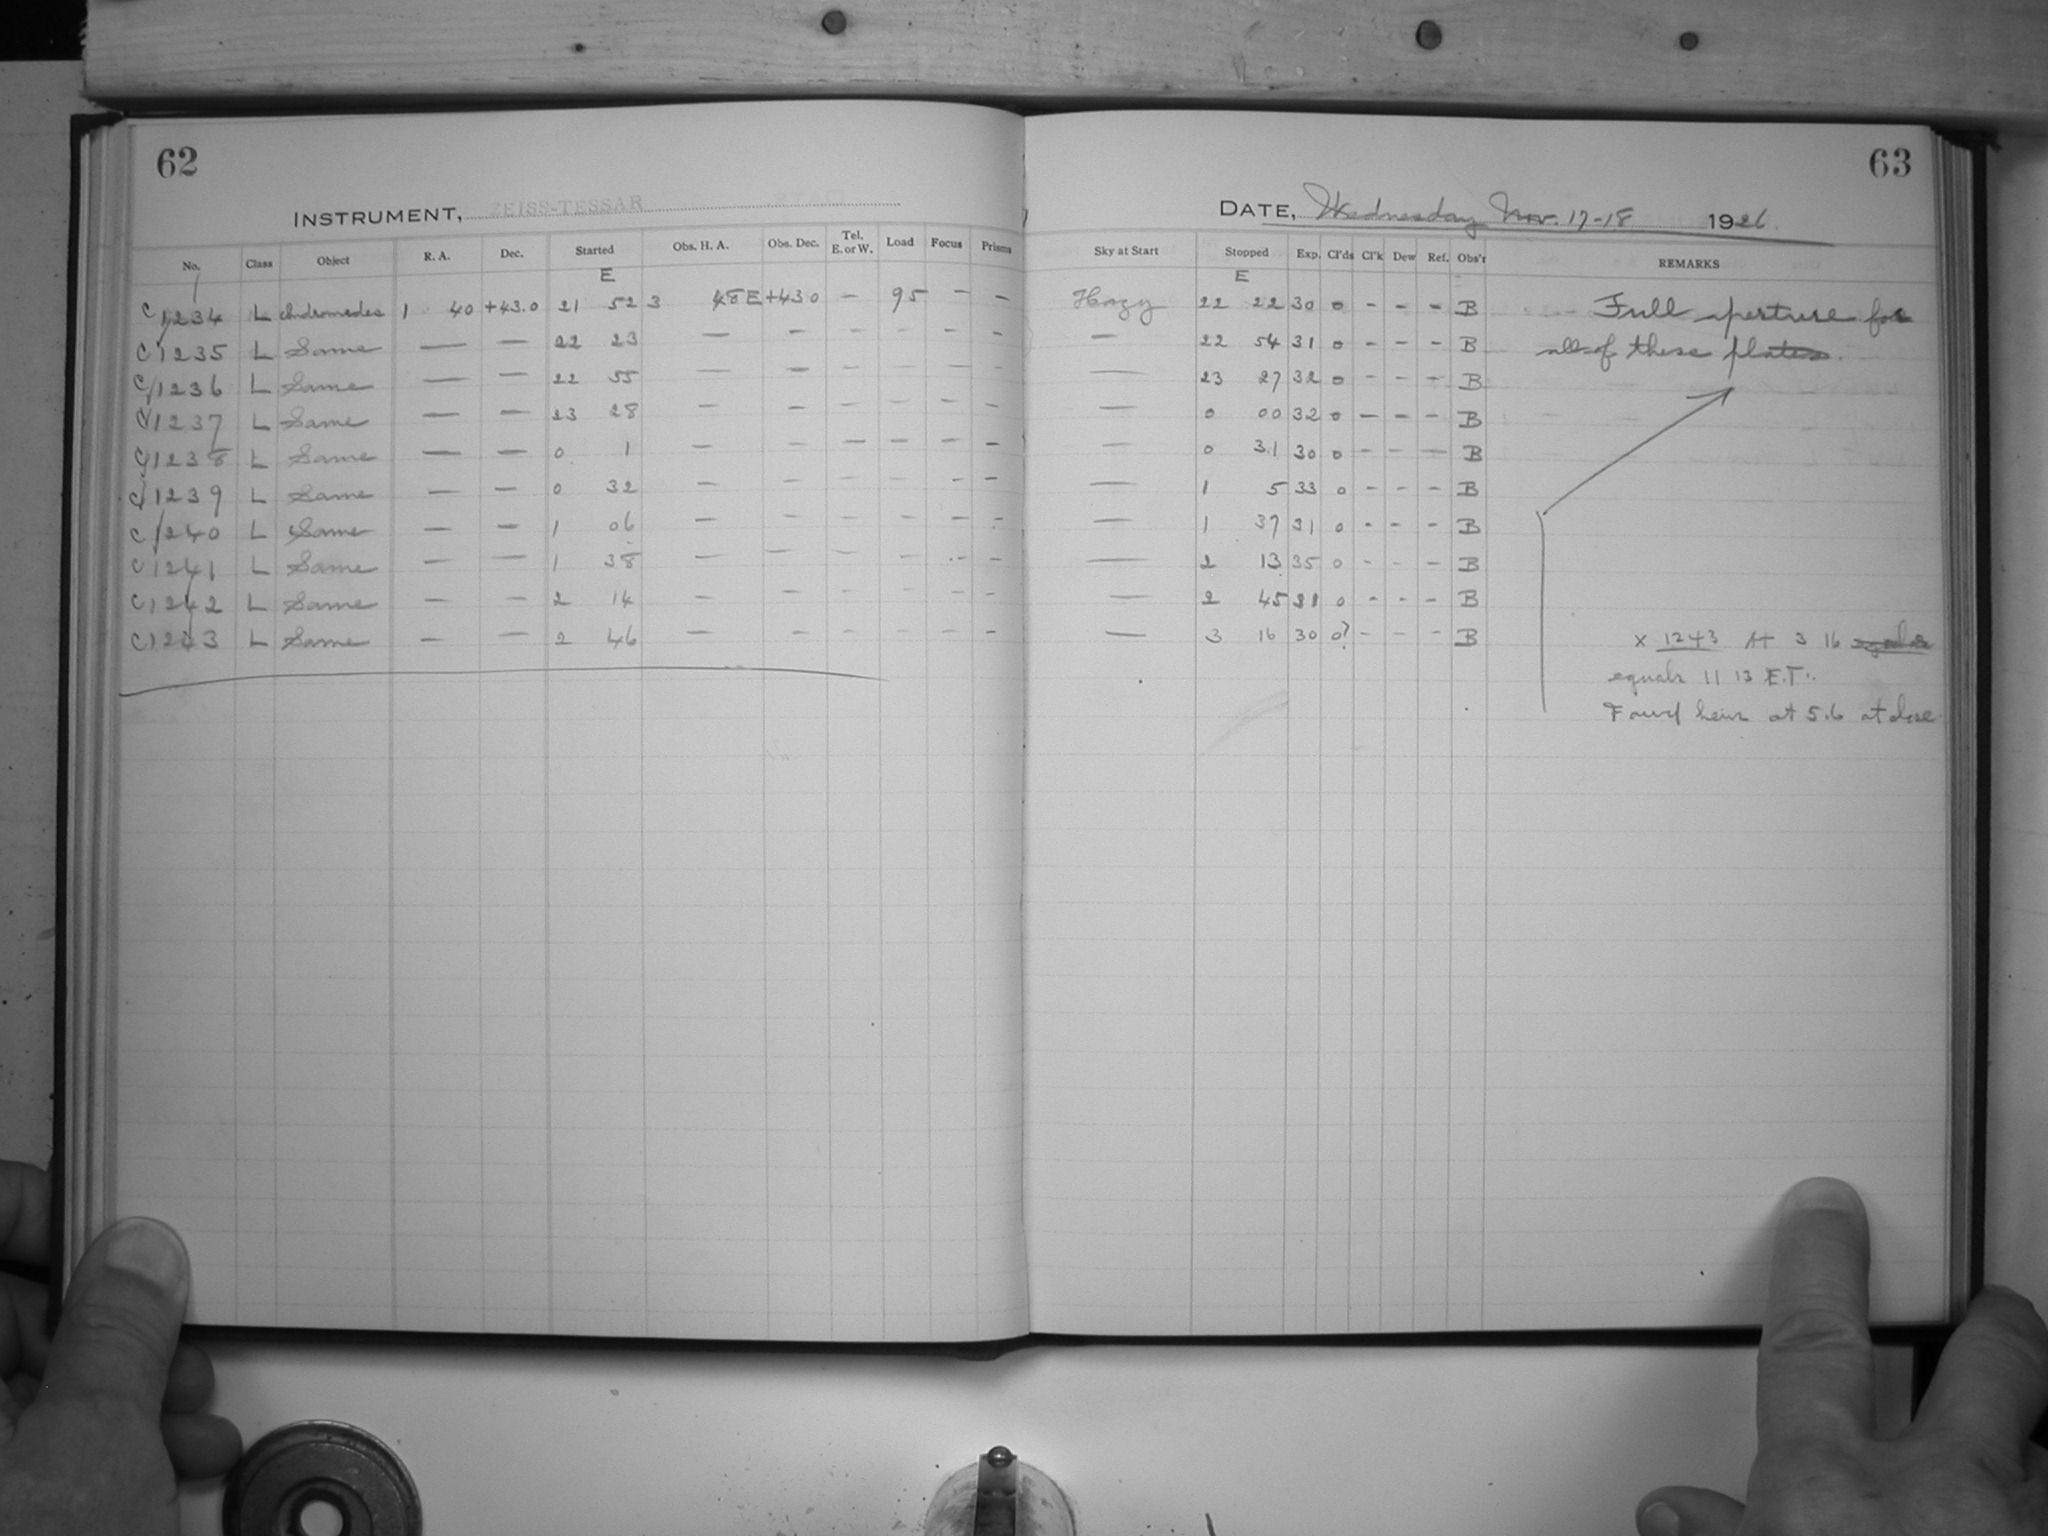 62
INSTRUMENT, ZEISS-TESSAR
No. Class Object R. A. Dec. Started Obs. H. A. Obs. Dec. Tel. E. or W. Load Focus Prisms
E
C 1234 L Andromedes 1 40 +43.0 21 52 3 48 E +43.0 — 95 — —
C 1235 L Same — — 22 23 — — — — — —
C 1236 L Same — — 22 55 — — — — — —
C 1237 L Same — — 23 28 — — — — — —
C 1238 L Same — — 0 1 — — — — — —
C 1239 L Same — — 0 32 — — — — — —
C 1240 L Same — — 1 06 — — — — — —
C 1241 L Same — — 1 38 — — — — — —
C 1242 L Same — — 2 14 — — — — — —
C 1243 L Same — — 2 46 — — — — — —
63
DATE, Wednesday Nov. 17-18 1926
Sky at Start Stopped Exp. Cl'ds Cl'k Dew Ref. Obs'r REMARKS
E
Hazy 22 22 30 0 - - - B Full aperture for
— 22 54 31 0 - - - B all of these plates.
— 23 27 32 0 - - - B
— 0 00 32 0 - - - B
— 0 31 30 0 - - - B
— 1 5 33 0 - - - B
— 1 37 31 0 - - - B
— 2 13 35 0 - - - B
— 2 45 31 0 - - - B
— 3 16 30 0? - - - B x 1243 At 3 16
equals 11 13 E.T.
Found at 5.6 at close